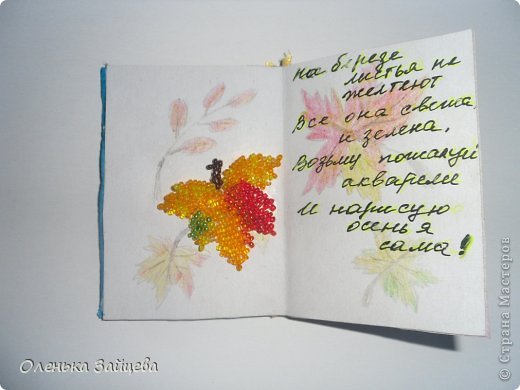 На березе
листья не
желтеют
Все она светла
и зелена.
Возьму пожалуй
акварели
И нарисую
осень я
сама!
Оленька Зайцева
© Страна Мастеров